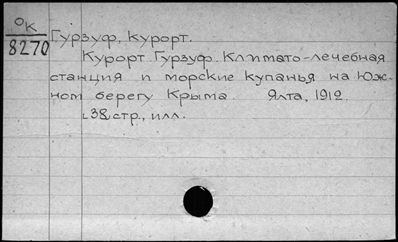 ОК
8270
Гурзуф, курорт.
Курорт Гурзуф. Климато-лечебная
станция и морские купанья на Юж-
ном берегу Крыма. Ялта, 1912.
38 стр., илл.